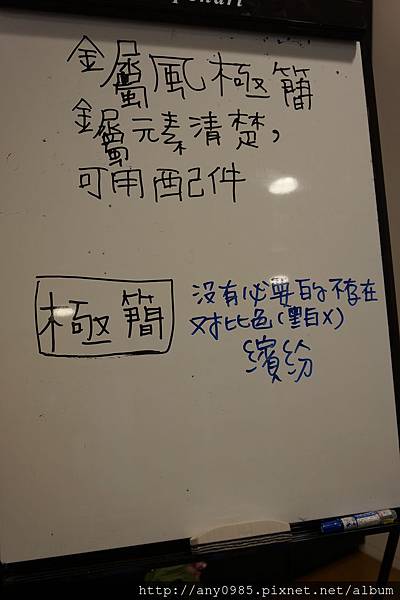 金屬風極簡
鏽元素清楚,
可用配件
極簡
沒有必要的不存在
对比色(黑白X)
繽紛
http://any0985.pixnet.net/album